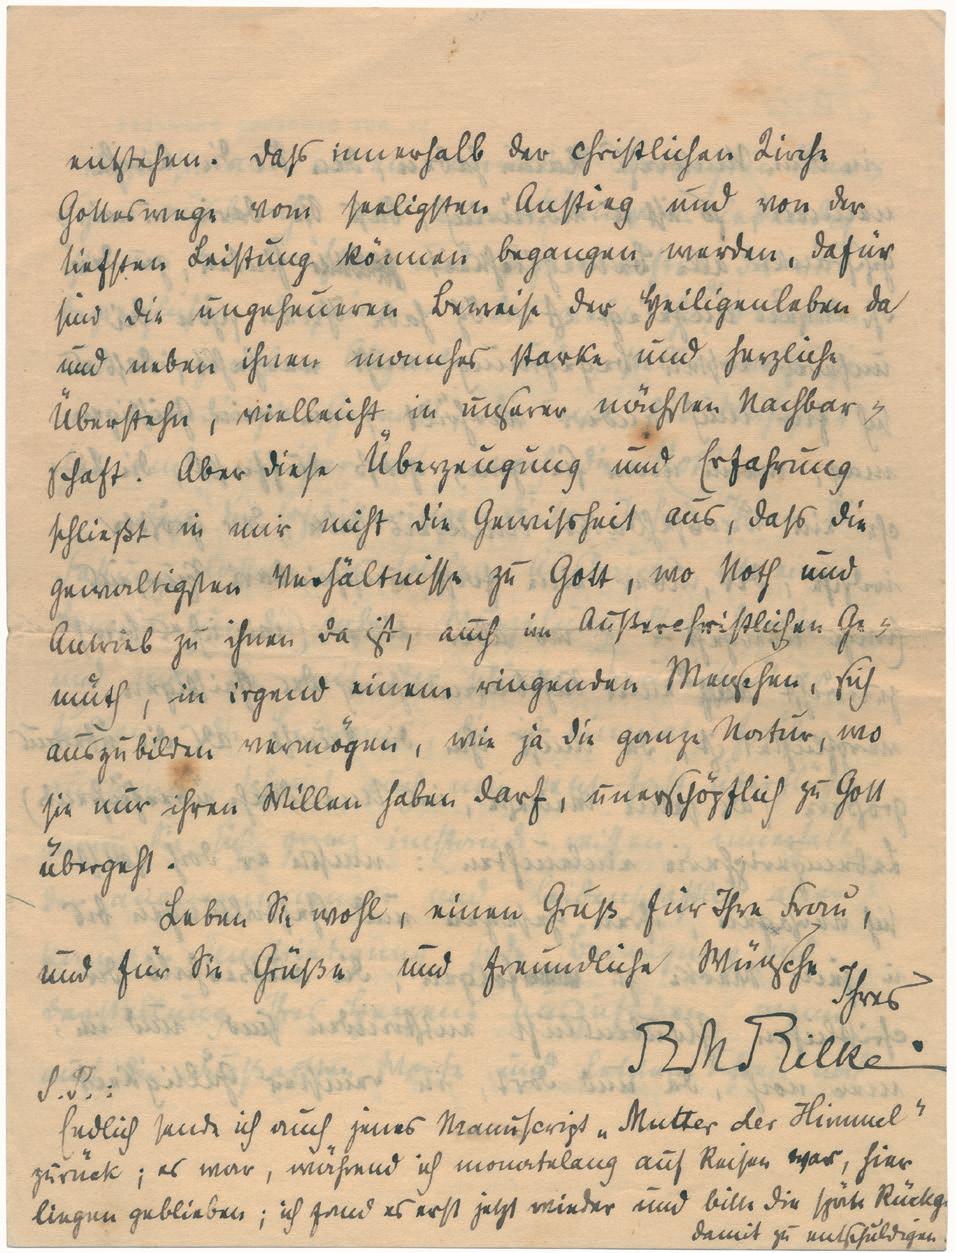 entstehen. Dass innerhalb der christlichen Kirche
Gotteswege vom seeligsten Anstieg und von der
tiefsten Leistung können begangen werden, dafür
sind die ungeheueren Beweise der Heiligenleben da
und neben ihnen manches starke und herzliche
Überstehn, vielleicht in unserer nächsten Nachbar-
schaft. Aber diese Überzeugung und Erfahrung
schließt in mir nicht die Gewissheit aus, dass die
gewaltigsten Verhältnisse zu Gott, wo Noth und
Antrieb zu ihnen da ist, auch im Außerchristlichen Ge-
müth, in irgend einem ringenden Menschen, sich
auszubilden vermögen, wie ja die ganze Natur, wo
sie nur ihren Willen haben darf, unerschöpflich zu Gott
übergeht.
Leben Sie wohl, einen Gruß für Ihre Frau,
und für Sie Grüße und freundliche Wünsche
Ihres
RMRilke.
S.P.:
Endlich sende ich auch jenes Manuscript „Mutter der Himmel"
zurück; es war, während ich monatelang auf Reisen war, hier
liegen geblieben; ich fand es erst jetzt wieder und bitte die späte Rückg.
damit zu entschuldigen.